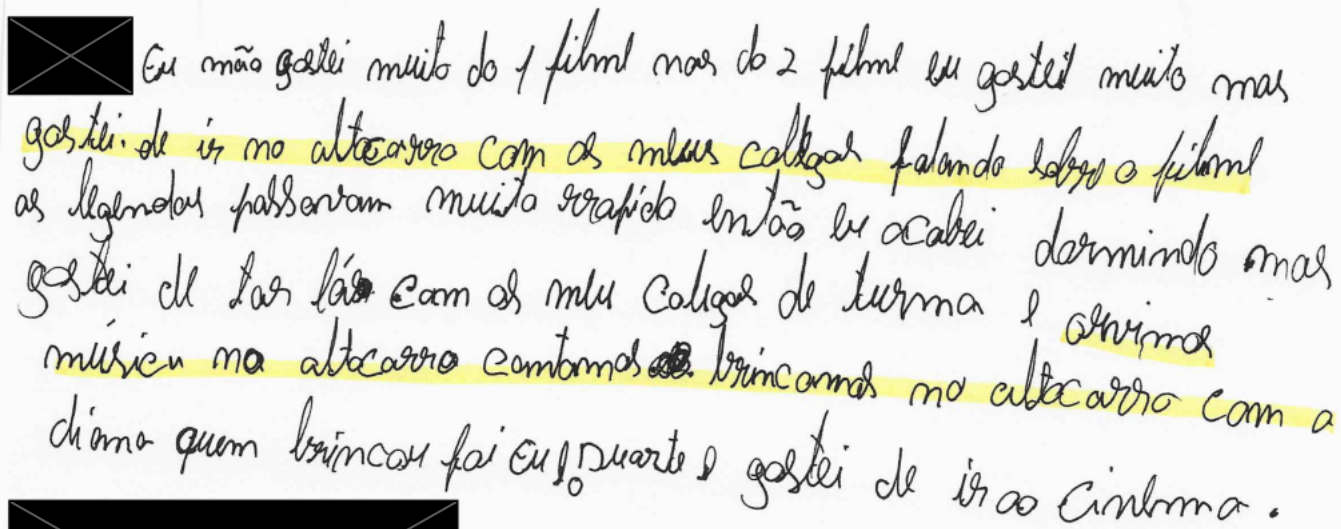 Eu não gostei muito do 1 filme mas do 2 filme eu gostei muito mas
gostei de ir no altocarro com os meus colegas falando sobre o filme
as legendas passavam muito rrapido então eu acabei dormindo mas
gostei de tar lá com os meu colegas de turma e orvimos
música no altocarro cantamos brincamos no altocarro com a
diana quem brincou foi Eu e o Duarte e gostei de ir ao Cinema.